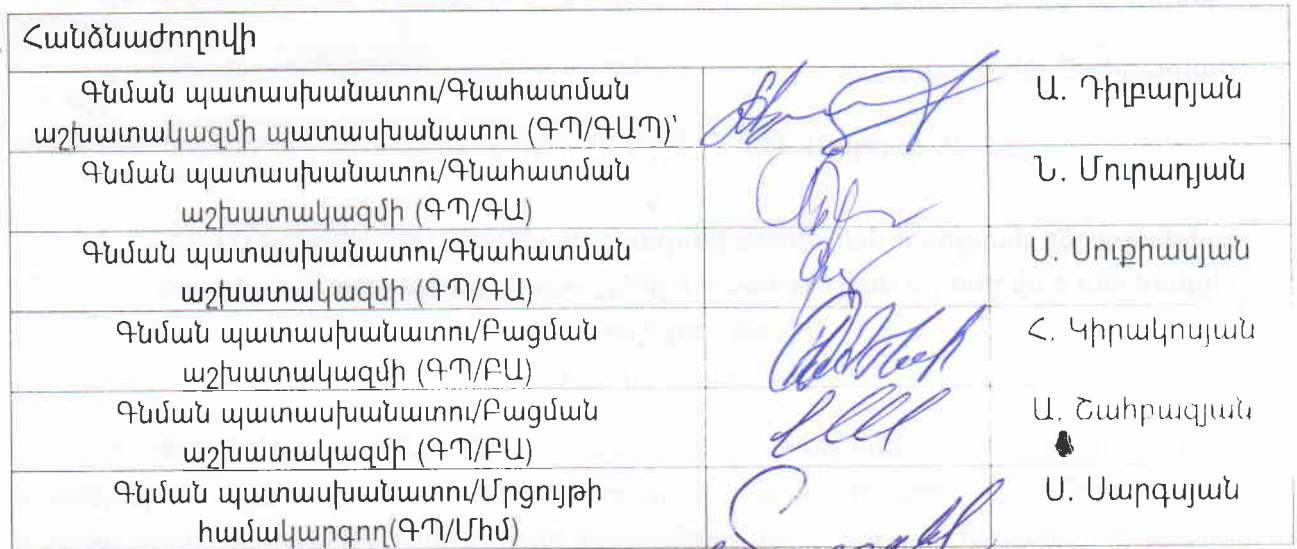 Հանձնաժողովի
Գնման պատասխանատու/Գնահատման
աշխատակազմի պատասխանատու (ԳՊ/ԳԱՊ)՝
Ա. Դիլբարյան
Գնման պատասխանատու/Գնահատման
աշխատակազմի (ԳՊ/ԳԱ)
Ն. Մուրադյան
Գնման պատասխանատու/Գնահատման
աշխատակազմի (ԳՊ/ԳԱ)
Ս. Սուքիասյան
Գնման պատասխանատու/Բացման
աշխատակազմի (ԳՊ/ԲԱ)
Հ. Կիրակոսյան
Գնման պատասխանատու/Բացման
աշխատակազմի (ԳՊ/ԲԱ)
Ա. Շահբազյան
Գնման պատասխանատու/Մրցույթի
համակարգող(ԳՊ/Մհմ)
Ս. Սարգսյան